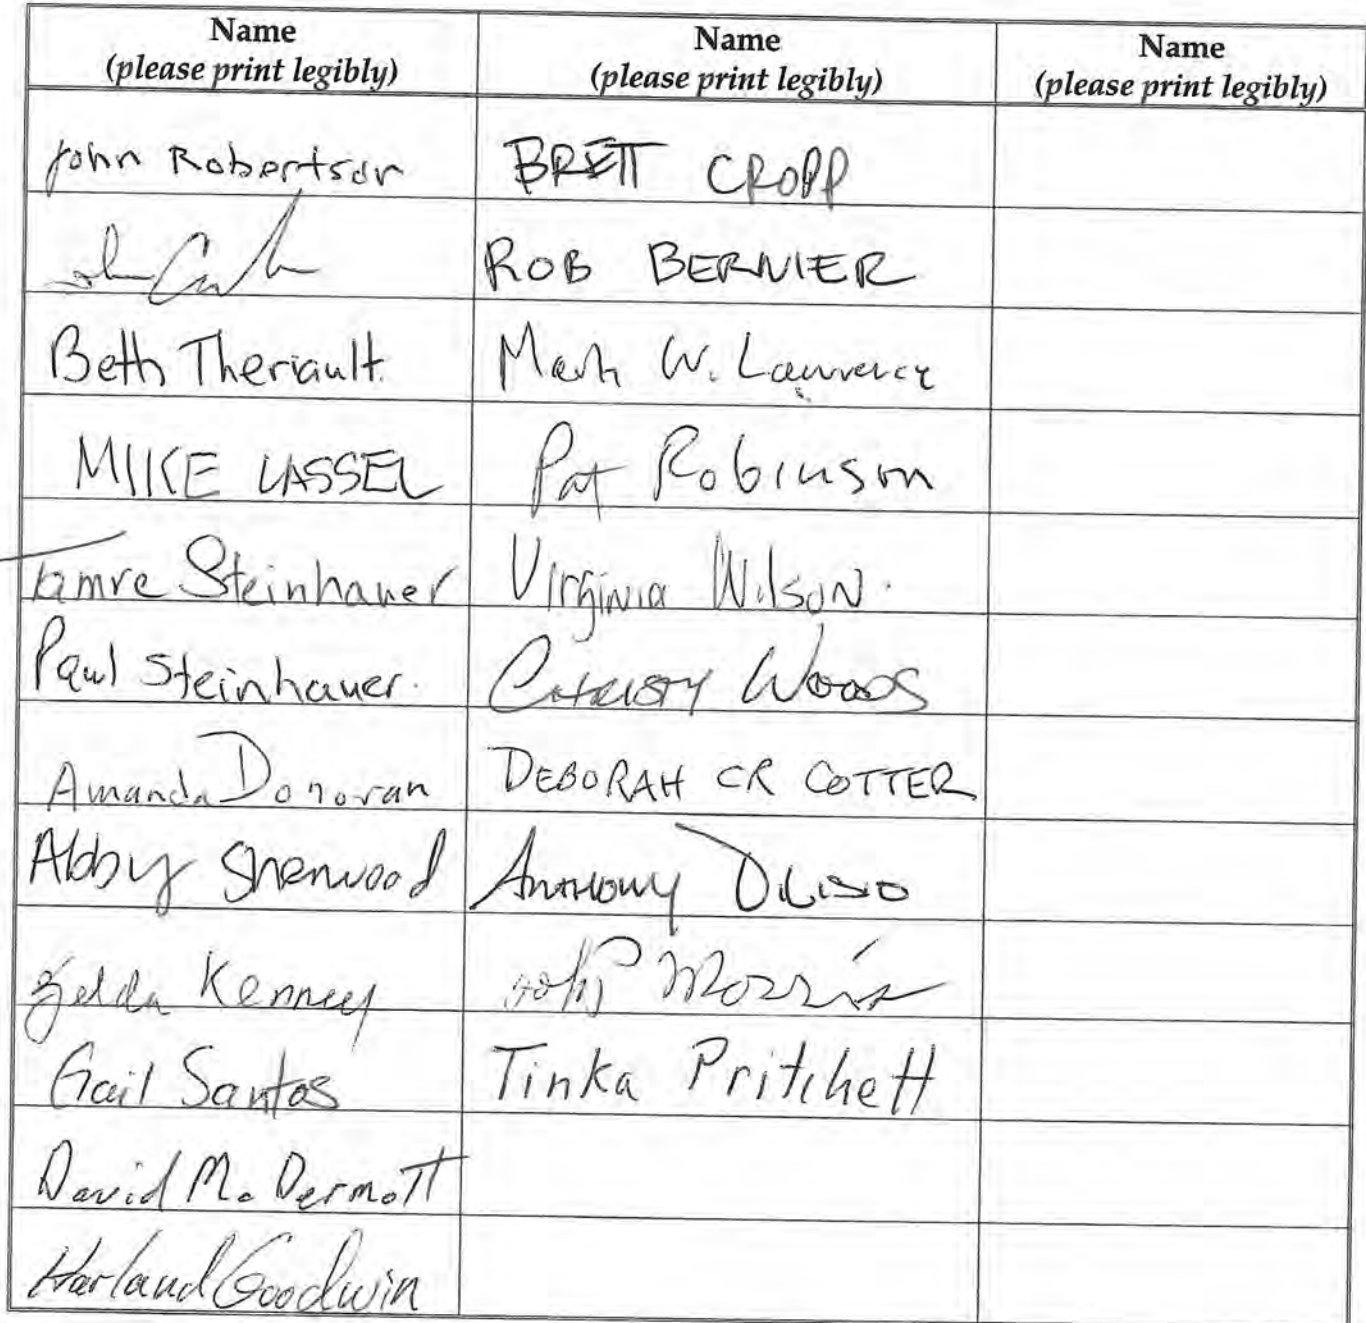 Name Name Name
(please print legibly) (please print legibly) (please print legibly)
John Robertson BRETT CROPP
ROB BERNIER
Beth Theriault Mark W. Lawrence
MIKE LASSEL Pat Robinson
Tamre Steinhauer Virginia Wilson
Paul Steinhauer Christy Woods
Amanda Donovan DEBORAH CR COTTER
Abby Sherwood Anthony
Zelda Kenney Morris
Gail Santos Tinka Pritchett
David McDermott
Harland Goodwin